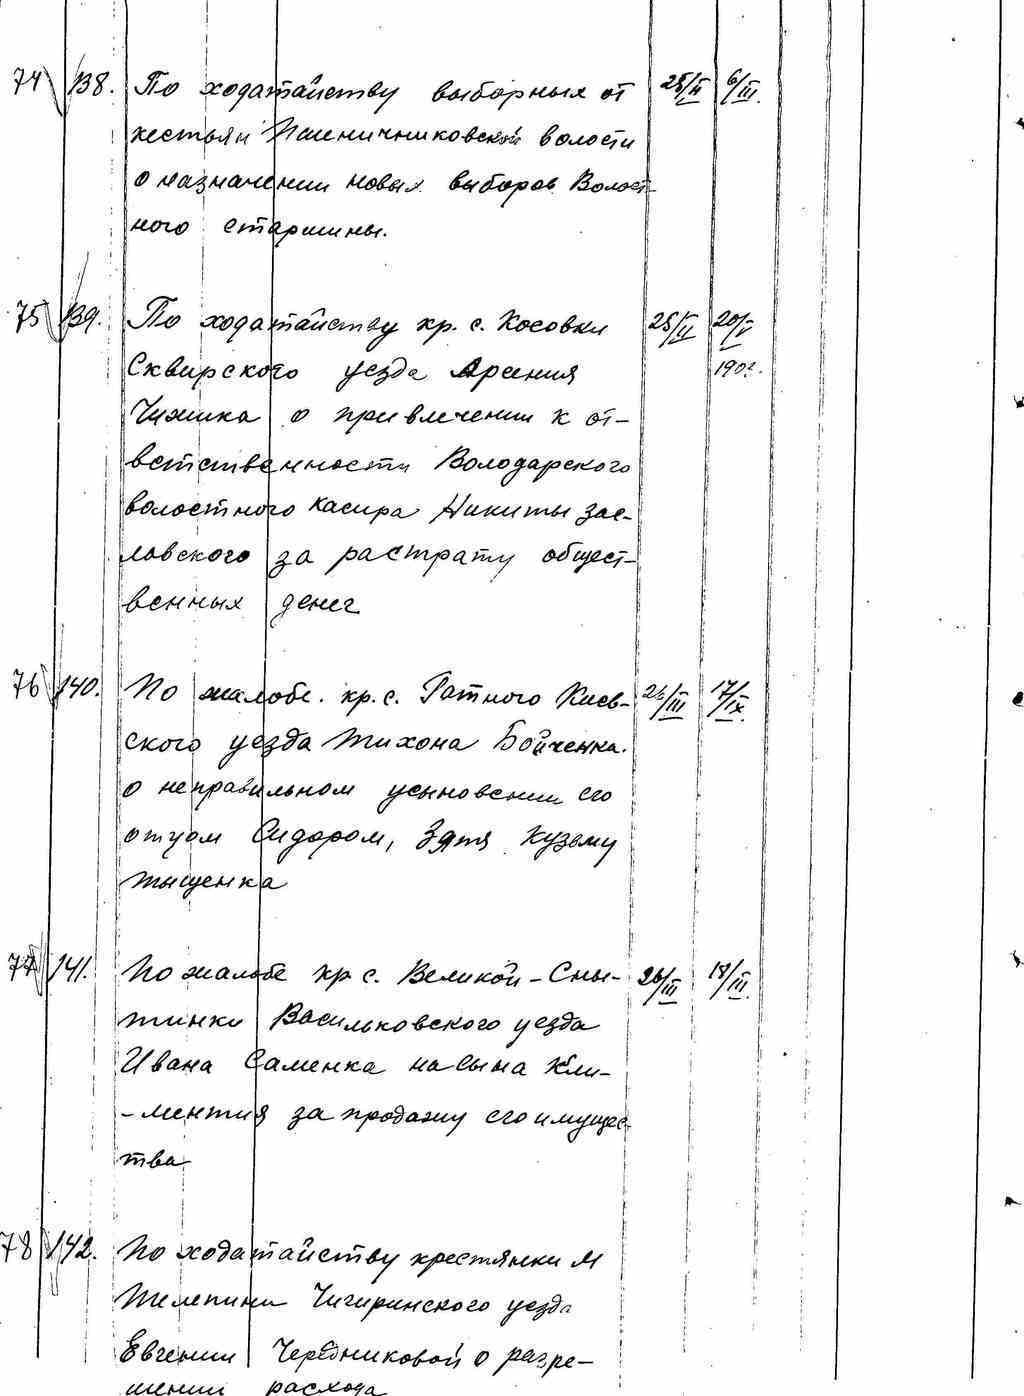 74 138. По ходатайству выборных от 25/II 6/III.
кестьян Пшеничниковской волости
о назначении новых выборов Волост-
ного старшины.
75 139. По ходатайству кр. с. Косовки 25/II 20/V
Сквирского уезда Арсения 190
Чижика о привлечении к от-
ветственности Володарского
волостного касира Никиты Зас-
лавского за растрату общест-
венных денег
76 140. По жалобе кр. с. Гатного Киев- /III 17/IX.
ского уезда Тихона Бойченка
о неправильном усыновении его
отцом Сидором, зятя Кузьму
Тыщенка
77 141. По жалобе кр с. Великой-Сны- 26/III 18/III.
тинки Васильковского уезда
Ивана Саменка на сына Кли-
-ментия за продажу его имущес-
тва
78 142. По ходатайству крестянки м
Телепини Чигиринского уезда
Евгении Чередниковой о разре-
шении расхода